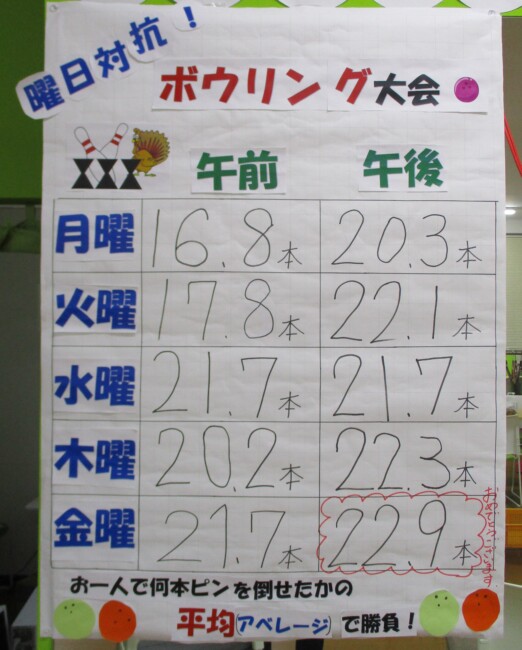 曜日対抗！
ボウリング大会
XXX
午前 午後
月曜 16.8本 20.3本
火曜 17.8本 22.1本
水曜 21.7本 21.7本
木曜 20.2本 22.3本
金曜 21.7本 22.9本
お一人で何本ピンを倒せたかの
平均(アベレージ)で勝負！